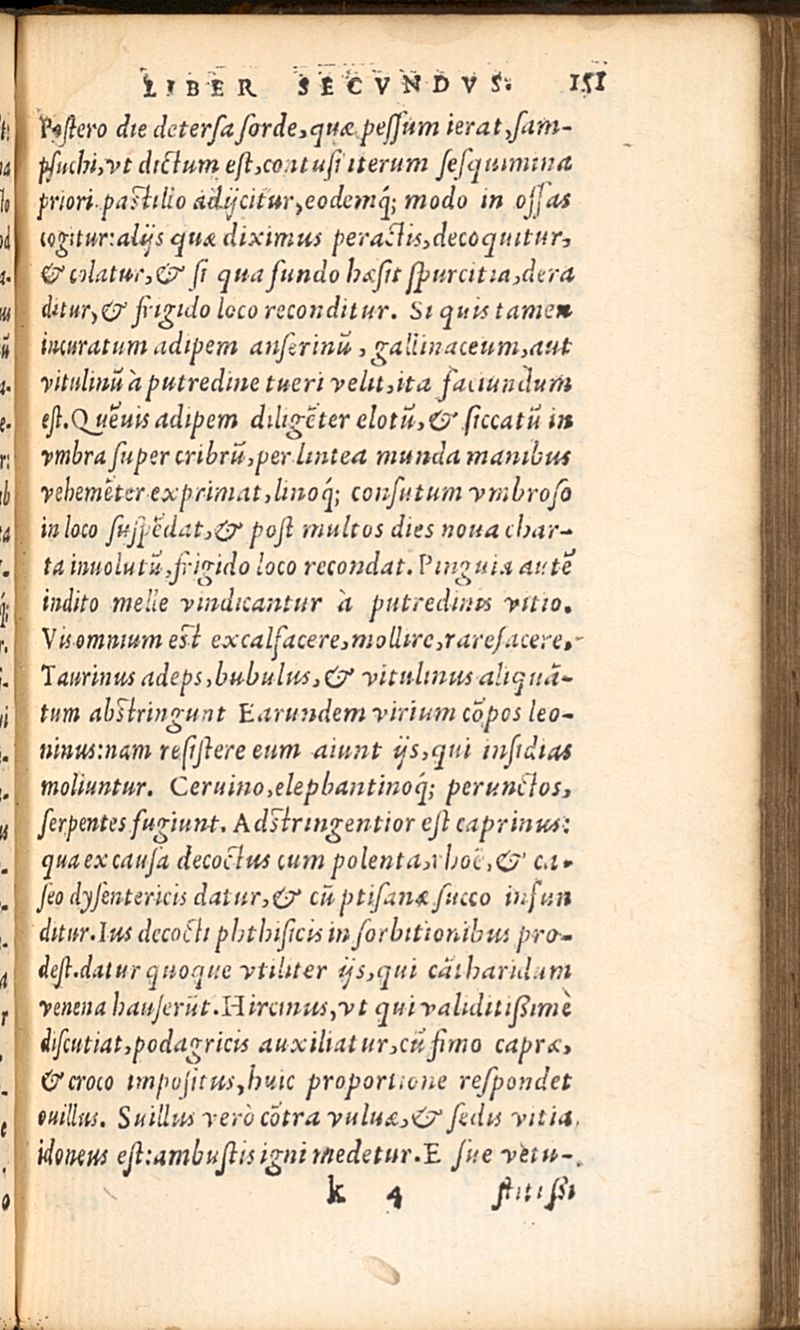 LIBER SECVNDVS. 151
Postero die detersa sorde, quæ pessum ierat, sam-
psuchi, vt dictum est, contusi iterum sesquimina
priori pastillo adijcitur, eodemq́; modo in offas
cogitur: alijs quæ diximus peractis, decoquitur,
& colatur, & si qua fundo hæsit spurcitia, dera
ditur, & frigido loco reconditur. Si quis tamen
incuratum adipem anserinũ, gallinaceum, aut
vitulinũ à putredine tueri velit, ita faciundum
est. Quẽuis adipem diligẽter elotũ, & siccatũ in
vmbra super cribrũ, per lintea munda manibus
vehemẽter exprimat, linoq́; consutum vmbroso
in loco suspẽdat, & post multos dies noua char-
ta inuolutũ, frigido loco recondat. Pinguia autẽ
indito melle vindicantur à putredinis vitio.
Vis omnium est excalfacere, mollire, rarefacere.
Taurinus adeps, bubulus, & vitulinus aliquã-
tum abstringunt Earundem virium cõpos leo-
ninus: nam resistere eum aiunt ijs, qui insidias
moliuntur. Ceruino, elephantinoq́; perunctos,
serpentes fugiunt. Adstringentior est caprinus:
qua ex causa decoctus cum polenta, rhoë, & ca-
seo dysentericis datur, & cũ ptisanæ succo infun
ditur. Ius decocti phthisicis in sorbitionibus pro-
dest. datur quoque vtiliter ijs, qui cãtharidum
venena hauserũt. Hircinus, vt qui validitißimè
discutiat, podagricis auxiliatur, cũ fimo capræ,
& croco impositus, huic proportione respondet
ouillus. Suillus verò cõtra vuluæ, & sedis vitia
idoneus est: ambustis igni medetur. E sue vetu-
k 4 stißi